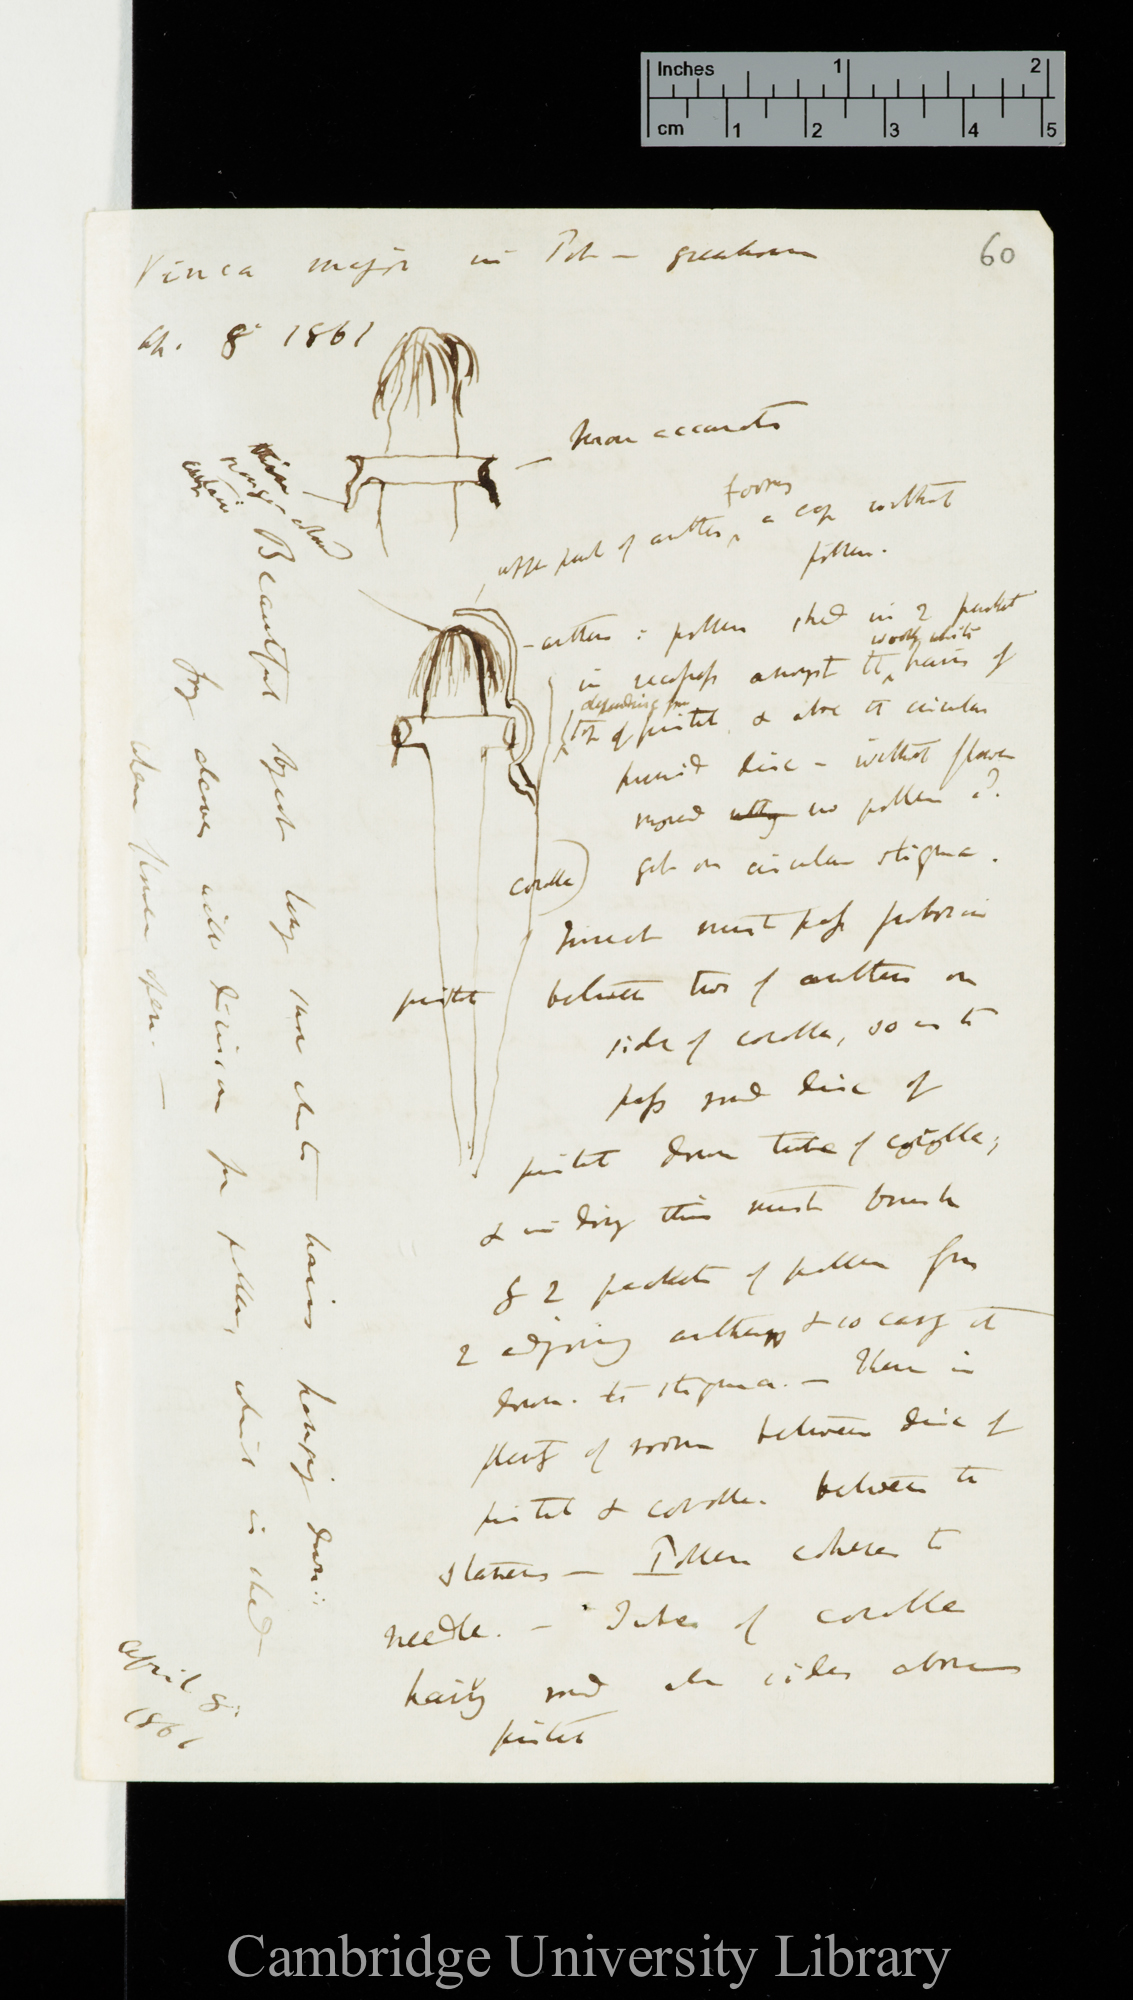 Inches 1 2
cm 1 2 3 4 5
60
Vinca major in Pot — greenhouse
Ap. 8 1861
more accurate
forms
upper part of anther, a cap without
pollen.
anthers : pollen shed in 2 packets
woolly white
in recesses amongst the hairs of
depending from
top of pistil, & above the circular
disc — without flower
moved no pollen
get on circular stigma.
corolla
Insect must pass proboscis
pistil
between two of anthers on
side of corolla, so as to
pass round disc of
pistil down tube of corolla;
& in doing this must brush
off 2 packets of pollen from
2 adjoining anthers & so carry it
down to stigma. — There is
plenty of room between disc of
pistil & corolla between the
stamens — Pollen adheres to
needle. — Tube of corolla
hairy round sides above
pistil
Beautiful object long white hairs hanging down
division for pollen, which is shed
when flower open. —
April 8
1861
Cambridge University Library